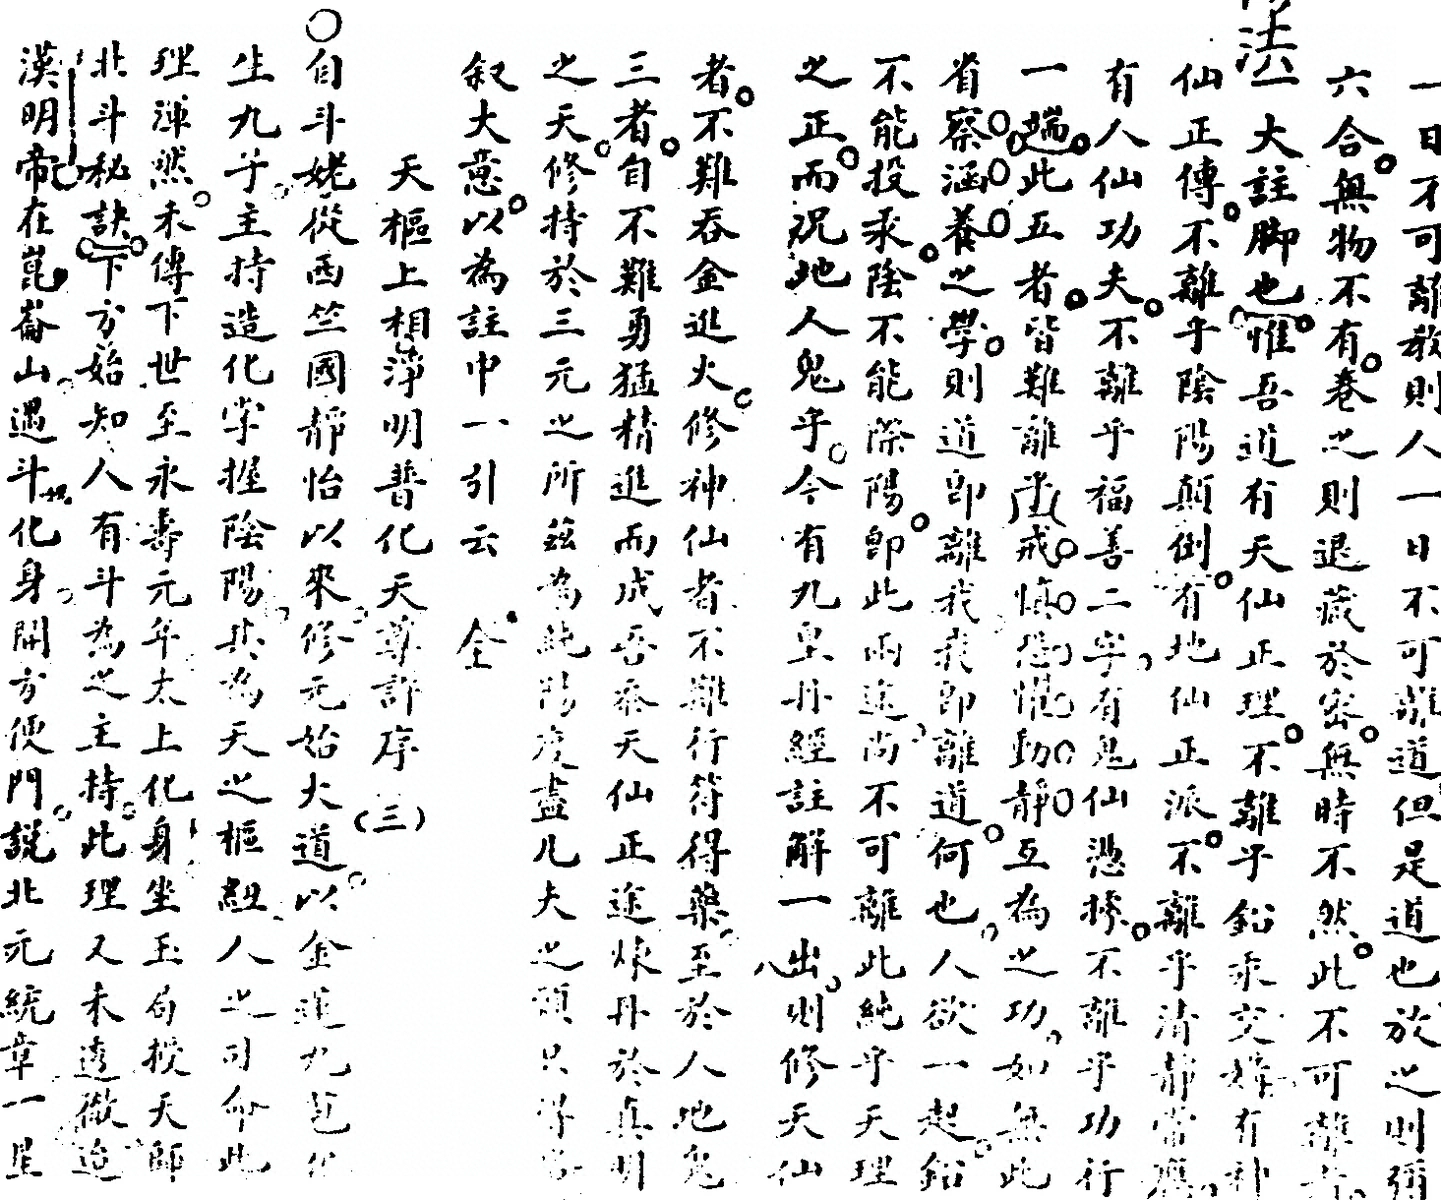 一日不可離教則人一日不可離道但是道也放之則彌
六合無物不有卷之則退藏於密無時不然此不可離
法一大註脚也惟吾道有天仙正理不離乎鉛汞交媾有神
仙正傳不離乎陰陽顛倒有地仙正派不離乎清靜常應
有人仙功夫不離乎福善二字有鬼仙憑據不離乎功行
一端此五者皆難離乎戒慎恐懼動靜互為之功如無此
省察涵養之學則道即離我我即離道何也人欲一起鉛
不能投汞陰不能際陽即此兩途尚不可離此純乎天理
之正而況地人鬼乎今有九皇丹經註解一出則修天仙
者不難吞金進火修神仙者不難行符得藥至於人地鬼
三者自不難勇猛精進而成吾泰天仙正途煉丹於真明
之天修持於三元之所茲為純陽度盡凡夫之願只得
叙大意以為註中一引云 全
天樞上相淨明普化天尊許序(三)
○自斗姥從西竺國靜怡以來修元始大道以金蓮九苞
生九子主持造化掌握陰陽共為天之樞紐人之司命此
理渾然未傳下世至永壽元年太上化身坐玉局授天師
北斗秘訣下方始知人有斗為之主持此理又未透徹迨
漢明帝在崑崙山遇斗姥化身開方便門說北元統章一是